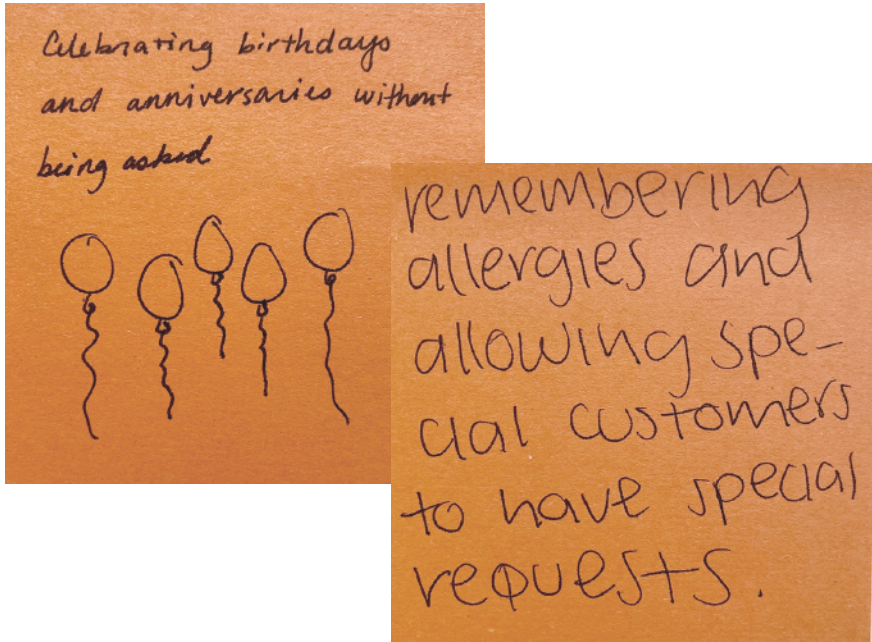 Celebrating birthdays
and anniversaries without
being asked
remembering
allergies and
allowing spe-
cial customers
to have special
requests.